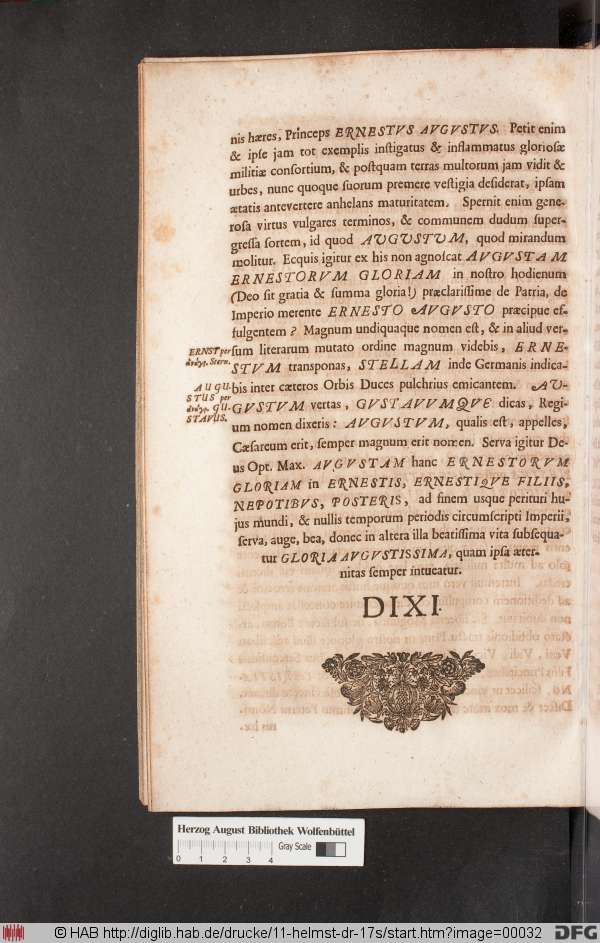 nis hæres, Princeps ERNESTVS AVGVSTVS. Petit enim
& ipse jam tot exemplis instigatus & inflammatus gloriosæ
militiæ consortium, & postquam terras multorum jam vidit &
urbes, nunc quoque suorum premere vestigia desiderat, ipsam
ætatis antevertere anhelans maturitatem. Spernit enim gene-
rosa virtus vulgares terminos, & communem dudum super-
gressa sortem, id quod AVGVSTVM, quod mirandum
molitur. Ecquis igitur ex his non agnoscat AVGVSTAM
ERNESTORVM GLORIAM in nostro hodienum
(Deo sit gratia & summa gloria!) præclarissime de Patria, de
Imperio merente ERNESTO AVGVSTO præcipue ef-
fulgentem? Magnum undiquaque nomen est, & in aliud ver-
sum literarum mutato ordine magnum videbis, ERNE-
STVM transponas, STELLAM inde Germanis indica-
bis inter cæteros Orbis Duces pulchrius emicantem. AU-
GVSTVM vertas, GVSTAVVMQVE dicas, Regi-
um nomen dixeris: AVGVSTVM, qualis est, appelles,
Cæsareum erit, semper magnum erit nomen. Serva igitur De-
us Opt. Max. AVGVSTAM hanc ERNESTORVM
GLORIAM in ERNESTIS, ERNESTIQVE FILIIS,
NEPOTIBVS, POSTERIS, ad finem usque perituri hu-
jus mundi, & nullis temporum periodis circumscripti Imperii,
serva, auge, bea, donec in altera illa beatissima vita subsequa-
tur GLORIA AVGVSTISSIMA, quam ipsa æter-
nitas semper intueatur.
DIXI.
ERNST per
ἀνάγρ. Stern.
AUGU-
STUS per
ἀνάγρ. GU-
STAVUS.
Herzog August Bibliothek Wolfenbüttel
0 1 2 3 4 Gray Scale
© HAB http://diglib.hab.de/drucke/11-helmst-dr-17s/start.htm?image=00032
DFG